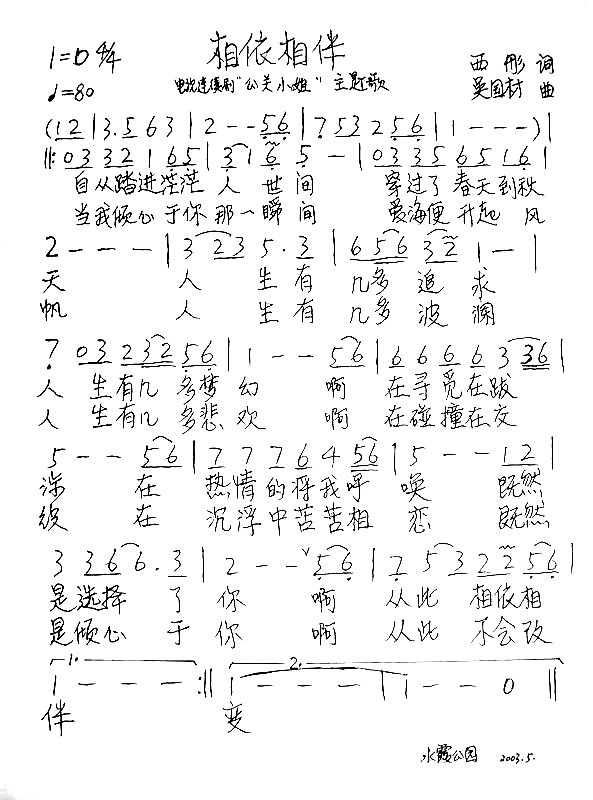 相依相伴
1=D 4/4
♩=80
电视连续剧"公关小姐" 主题歌
西彤 词
吴国材 曲
(1 2 | 3. 5 6 3 | 2 - - 5 6 | 7 5 3 2 5 6 | 1 - - - ) |
‖: 0 3 3 2 1 6 5 | 3 1 6 5 - | 0 3 3 5 6 5 1 6 |
自从踏进茫茫 人 世 间 穿过了 春天到秋
当我倾心于你那一瞬间 爱海便升起 风
2 - - - | 3 2 3 5 . 3 | 6 5 6 3 2 1 - |
天 人 生 有 几多 追 求
帆 人 生 有 几多 波 澜
7 0 3 2 3 2 5 6 | 1 - - 5 6 | 6 6 6 6 3 3 6 |
人 生有几 多梦 幻 啊 在寻觅在跋
人 生有几 多悲 欢 啊 在碰撞在交
5 - - 5 6 | 7 7 7 6 4 5 6 | 5 - - 1 2 |
涉 在 热情的将我呼 唤 既然
织 在 沉浮中苦苦相 恋 既然
3 3 6 6 . 3 | 2 - - ∨ 5 6 | 7 5 3 2 2 5 6 |
是选择 了 你 啊 从此 相依相
是倾心 于 你 啊 从此 不会改
1. 2.
1 - - - :‖ 1 - - - | 1 - - 0 ‖
伴 变
水霞公园 2003.5.